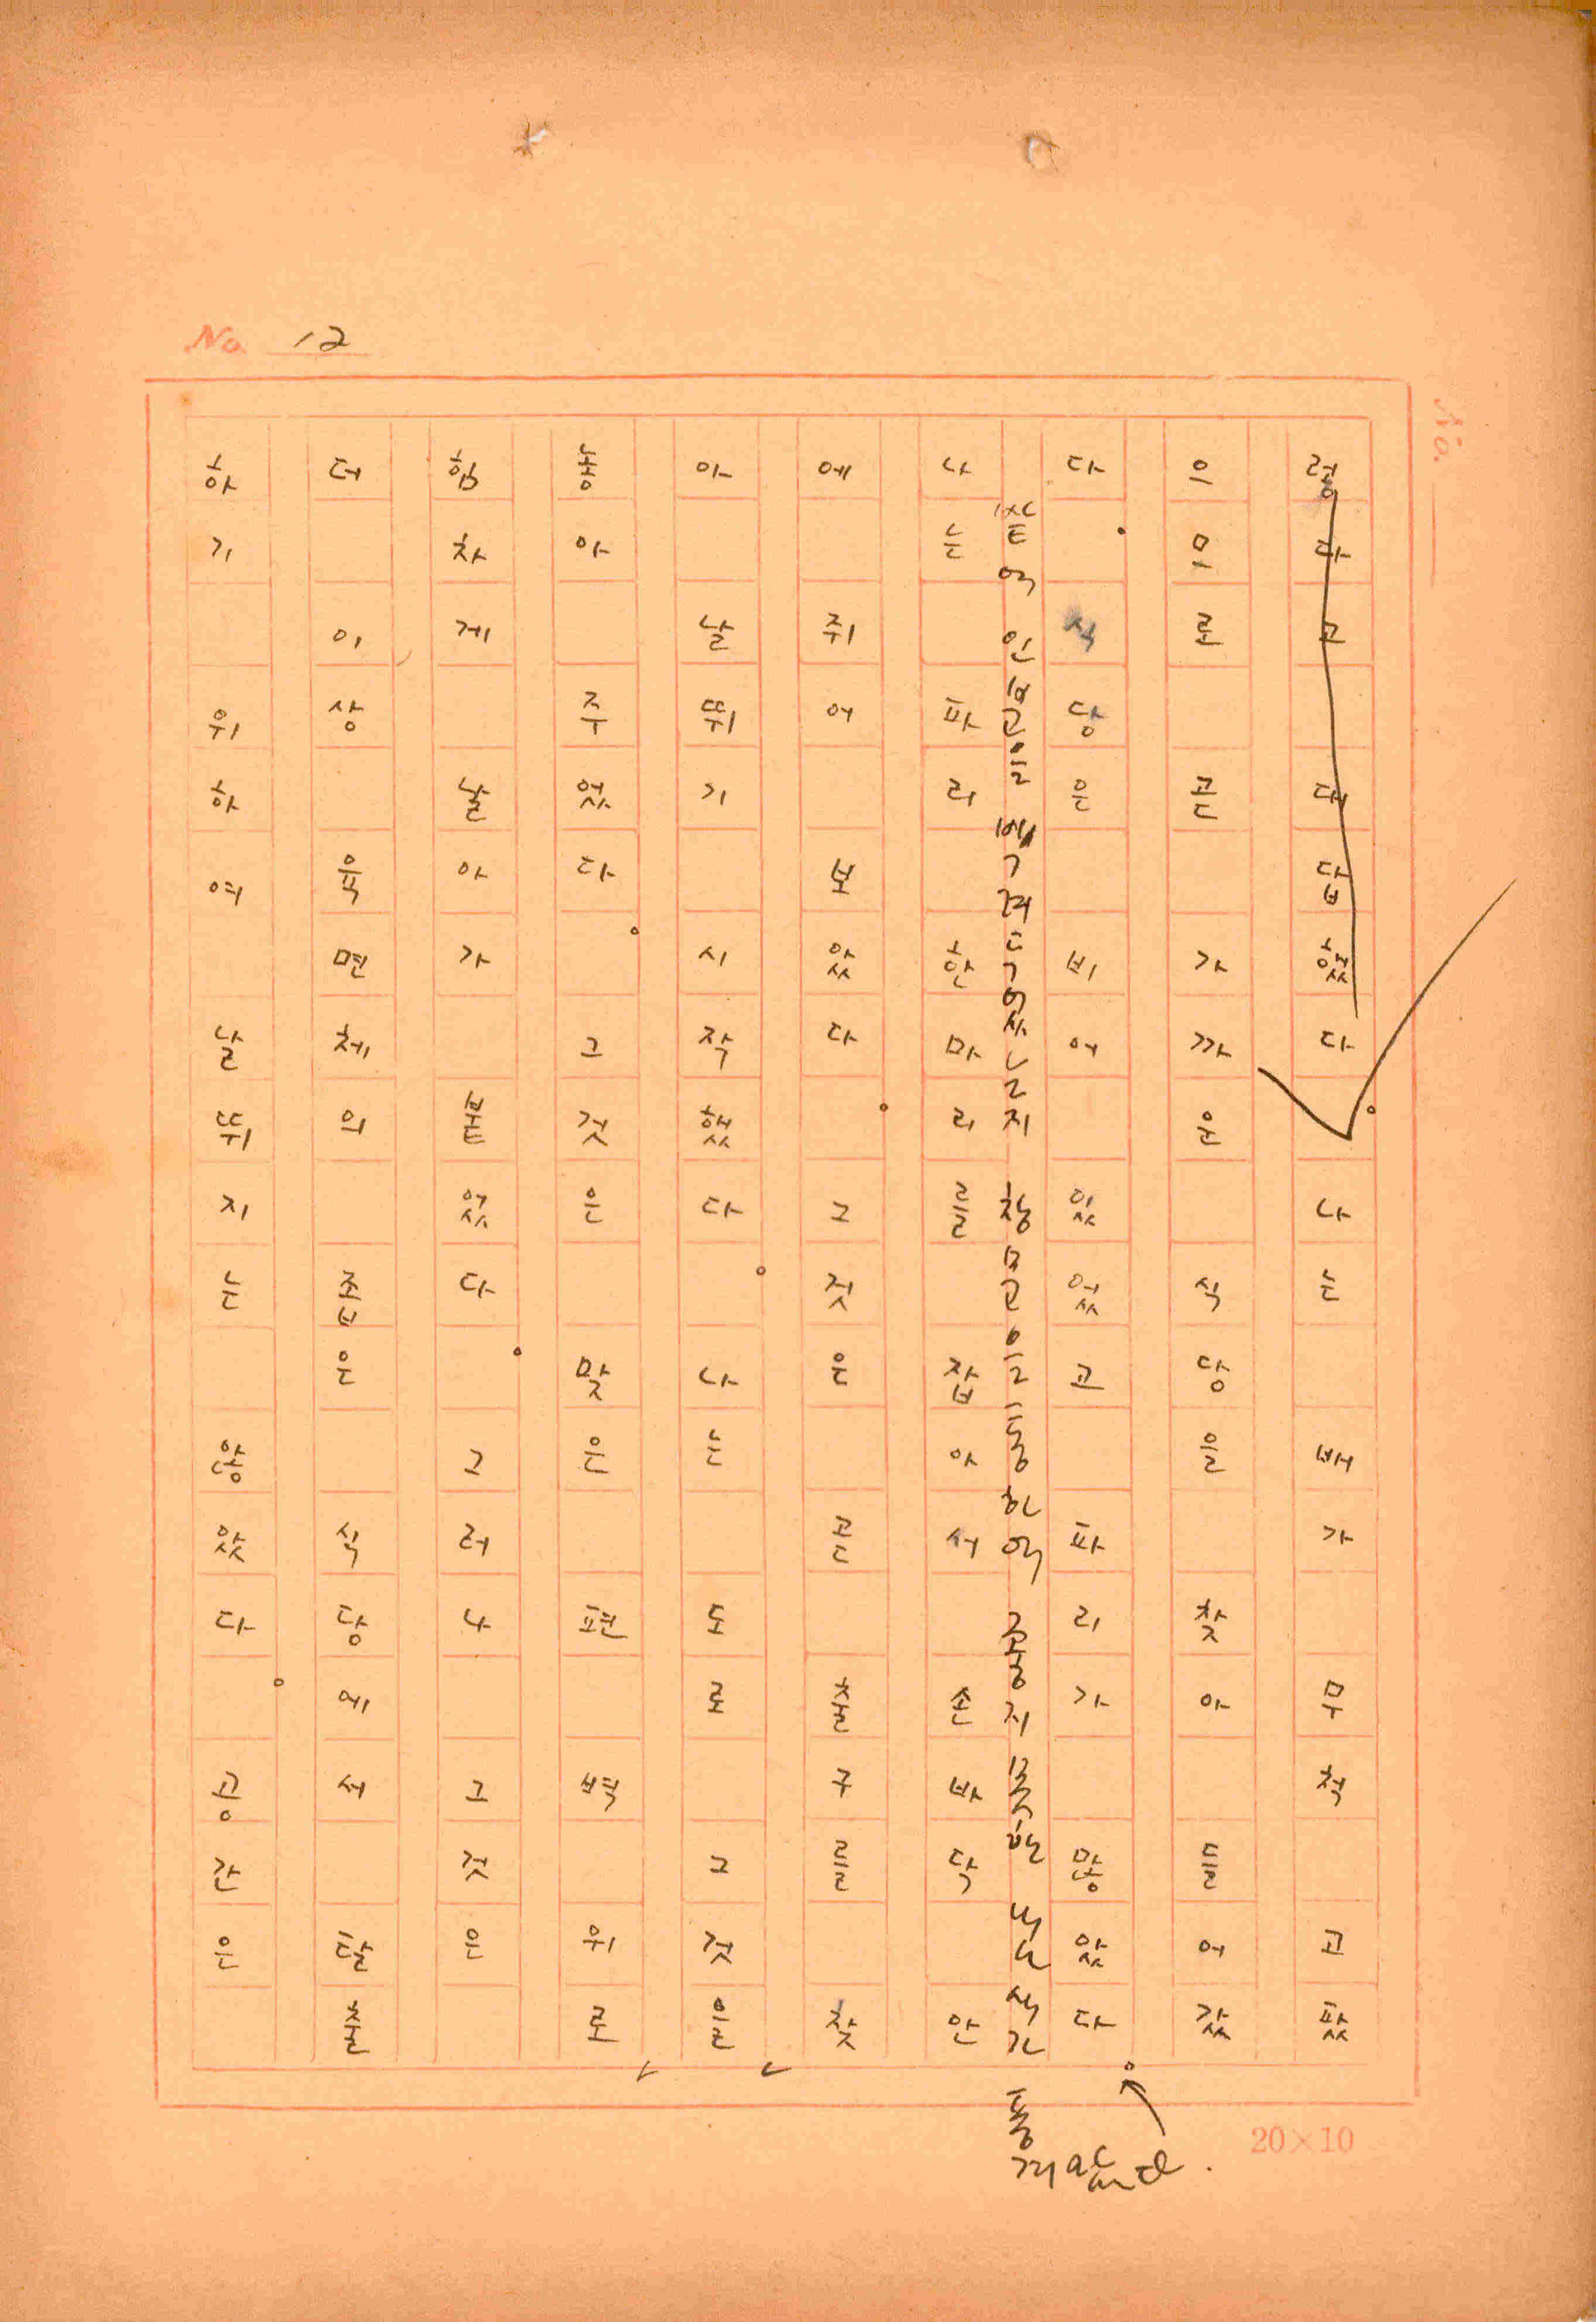 No. 12
렇다고 대답했다。 나는 배가 무척 고팠
으므로 곧 가까운 식당을 찾아 들어갔
다. 식당은 비어 있었고 파리가 많았다。
나는 파리 한 마리를 잡아서 손바닥 안
에 쥐어 보았다。 그것은 곧 출구를 찾
아 날뛰기 시작했다。 나는 도로 그것을
놓아 주었다。 그것은 맞은 편 벽 위로
힘차게 날아가 붙었다。 그러나 그것은
더 이상 육면체의 좁은 식당에서 탈출
하기 위하여 날뛰지는 않았다。 공간은
20×10
No.